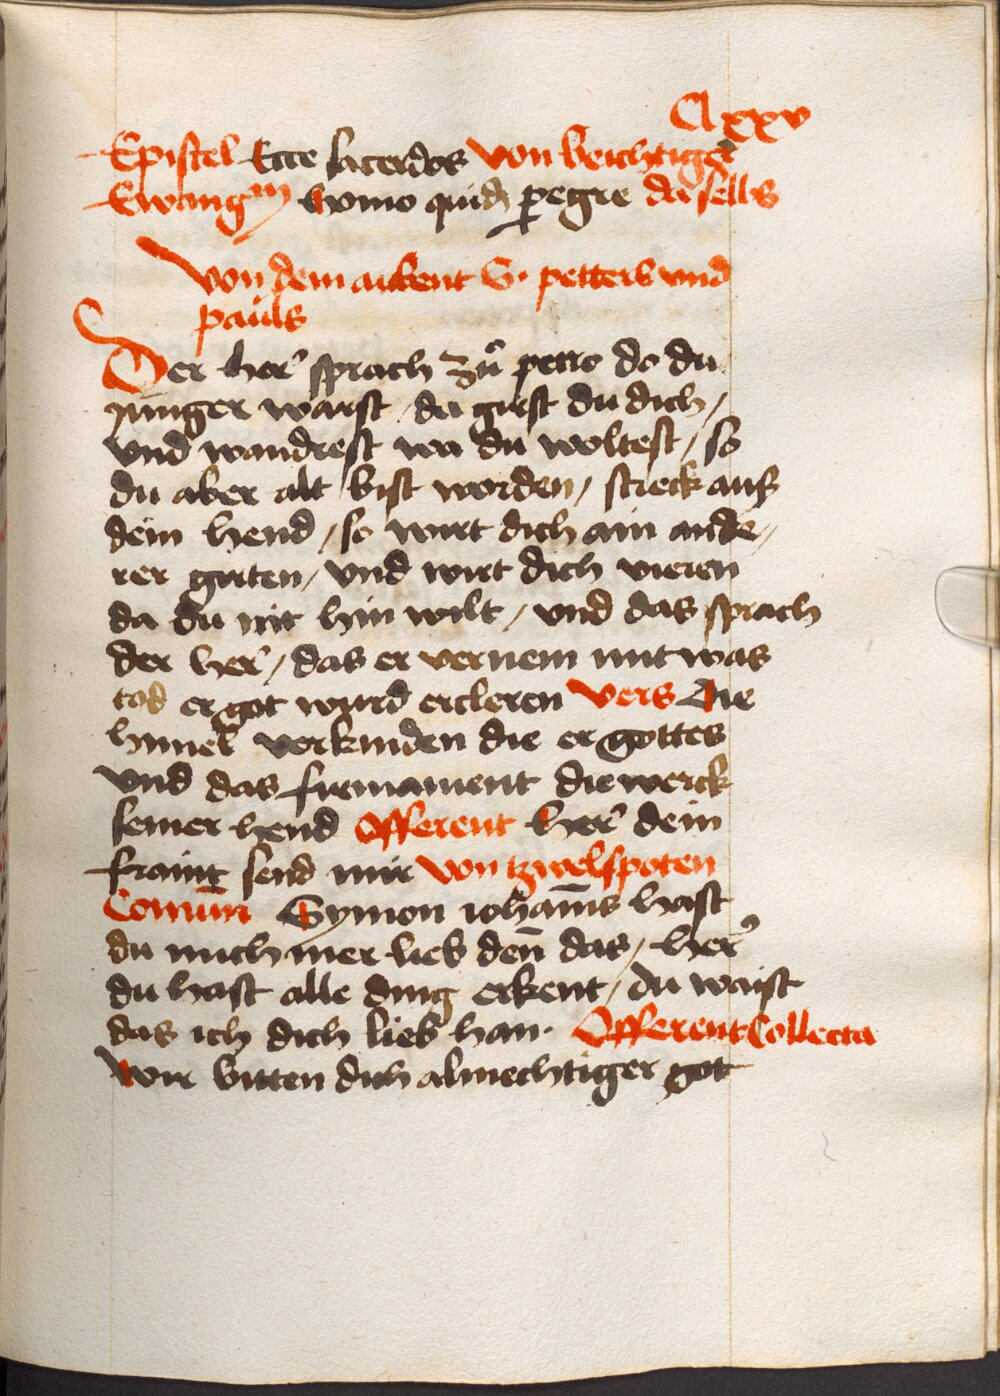 Clxxv
Epistel Ecce sacerdos von beichtiger
Ewangm homo quidem peregre da selbs
Von dem aubent S. petters und
pauls
Der her sprach zů petro do du
junger warst / da gurst du dich /
und wandrest wa du woltest / so
du aber alt bist worden / streck aus
dein hend / so wirt dich ain ande /
rer gurten / und wirt dich vieren
da du nit hin wilt / und das sprach
der her / das er vernem mit was
tod er got wurd ercleren Vers Die
himel verkinden die er gottes
und das firmament die werck
seiner hend Offerent Her dein
fraint send mir von tzwelfpoten
Comun Symon iohannis hast
du mich mer lieb den das / her
du hast alle ding erkent / du waist
das ich dich lieb han. Offerent Collecta
Wir bitten dich almechtiger got